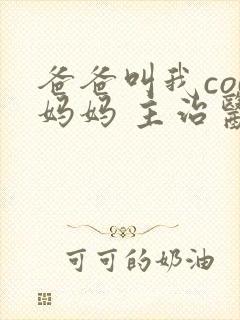 爸爸叫我co
妈妈 主治
可可的奶油